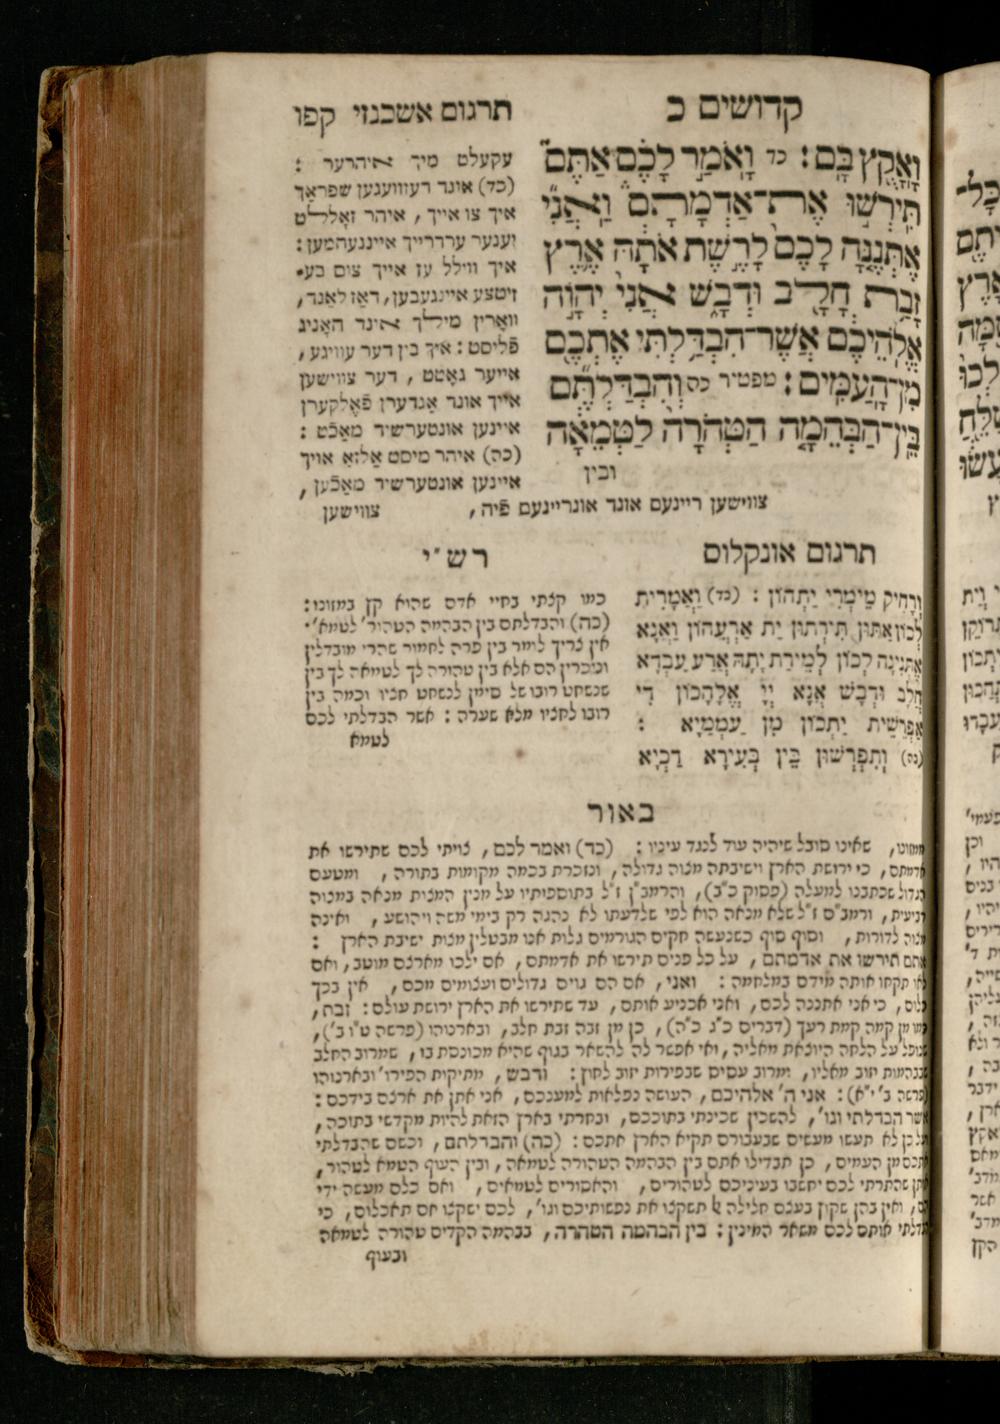 קדושים כ
תרגום אשכנזי קפו
וָאָקֻץ בָּם : כד וָאֹמַר לָכֶם אַתֶּם
תִּירְשׁוּ אֶת־אַדְמָתָם וַאֲנִי
אֶתְּנֶנָּה לָכֶם לָרֶשֶׁת אֹתָהּ אֶרֶץ
זָבַת חָלָב וּדְבָשׁ אֲנִי יְהוָֹה
אֱלֹהֵיכֶם אֲשֶׁר־הִבְדַּלְתִּי אֶתְכֶם
מִן־הָעַמִּים : מפטיר כה וְהִבְדַּלְתֶּם
בֵּין־הַבְּהֵמָה הַטְּהֹרָה לַטְּמֵאָה
ובין
עקעלט מיך איהרער :
(כד) אונד דעזוועגען שפראַך
איך צו אייך , איהר זאָללט
יענער ערדרייך איינגעהמען :
איך ווילל עז אייך צום בע־
זיטצע איינגעבען, דאַז לאַנד,
וואָרין מילך אונד האָניג
פֿליסט : איך בין דער עוויגע,
אייער גאָטט , דער צווישען
אייך אונד אַנדערן פֿאָלקערן
איינען אונטערשיד מאַכֿט :
(כה) איהר מיסט אַלזאָ אויך
איינען אונטערשיד מאַכֿען,
צווישען ריינעם אונד אונריינעם פֿיה, צווישען
תרגום אונקלוס
וְרָחֵיק מֵימְרִי יַתְהוֹן : (כד) וַאֲמָרִית
לְכוֹן אַתּוּן תֵּירְתוּן יָת אַרְעֲהוֹן וַאֲנָא
אֶתְּנִינַהּ לְכוֹן לְמֵירַת יָתַהּ אֲרַע עָבְדָא
חֲלַב וּדְבָשׁ אֲנָא יְיָ אֱלָהֲכוֹן דִּי
אַפְרֵשִׁית יַתְכוֹן מִן עַמְמַיָּא :
(כה) וְתַפְרְשׁוּן בֵּין בְּעִירָא דַכְיָא
רש״י
כמו קצתי בחיי אדם שהוא קץ במזונו:
(כה) והבדלתם בין הבהמה הטהור׳ לטמא׳.
אין צריך לומר בין פרה לחמור שהרי מובדלין
וניכרין הם אלא בין טהורה לך לטמאה לך בין
שנשחט רובו של סימן לנשחט חציו וכמה בין
רובו לחציו מלא שערה : אשר הבדלתי לכם
לטמא
באור
ממזונו, שאינו סובל שיהיה עוד לנגד עיניו : (כד) ואמר לכם, צויתי לכם שתירשו את
אדמתם, כי ירושת הארץ וישיבתה מצוה גדולה, ונזכרת בכמה מקומות בתורה, ומטעם
הגדול שכתבנו למעלה (פסוק כ״ב), והרמב״ן ז״ל בתוספותיו על מנין המצות מנאה במצוה
רביעית, ורמב״ם ז״ל שלא מנאה הוא לפי שלדעתו לא נהגה רק בימי משה ויהושע, ואינה
מצוה לדורות, וסוף סוף כשנעשה חקים הגורמים גלות אנו מבטלין מצות ישיבת הארץ :
אתם תירשו את אדמתם, על כל פנים תירשו את אדמתם, אם ילכו מארצם מוטב, ואם
לאו תקחו אותה מידם במלחמה : ואני, אם הם גוים גדולים ועצומים מכם, אין בכך
כלום, כי אני אתננה לכם, ואני אכניע אותם, עד שתירשו את הארץ ירושת עולם : זבת,
כמו מן קמה קמת רעך (דברים כ״ג כ״ה), כן מן זבה זבת חלב, ובארנוהו (פרשה ט״ו ב׳),
שנופל על הלחה היוצאת מאליה, ואי אפשר לה להשאר בגוף שהיא מכונסת בו, שמרוב החלב
שבבהמות יזוב מאליו, ומרוב עסים שבפירות יזוב לחוץ : ודבש, מתיקות הפירו׳ ובארנוהו
(פרשה ב׳ י״א) : אני ה׳ אלהיכם, העושה נפלאות למענכם, אני אתן את ארצם בידכם :
אשר הבדלתי וגו׳, להשכין שכינתי בתוככם, ובחרתי בארץ הזאת להיות מקדשי בתוכה,
על כן לא תעשו מעשים שבעבורם תקיא הארץ אתכם : (כה) והבדלתם, וכשם שהבדלתי
אתכם מן העמים, כן תבדילו אתם בין הבהמה הטהורה לטמאה, ובין העוף הטמא לטהור,
אותן שהתרתי לכם יחשבו בעיניכם לטהורים, והאסורים לטמאים, ואם כלם מעשה ידי
הם, ואין בהן שקוץ בעצם חלילה לא תשקצו את נפשותיכם וגו׳, לכם ישקצו אם תאכלום, כי
הבדלתי אותם לכם משאר המינין : בין הבהמה הטהרה, בבהמה הקדים טהורה לטמאה
ובעוף